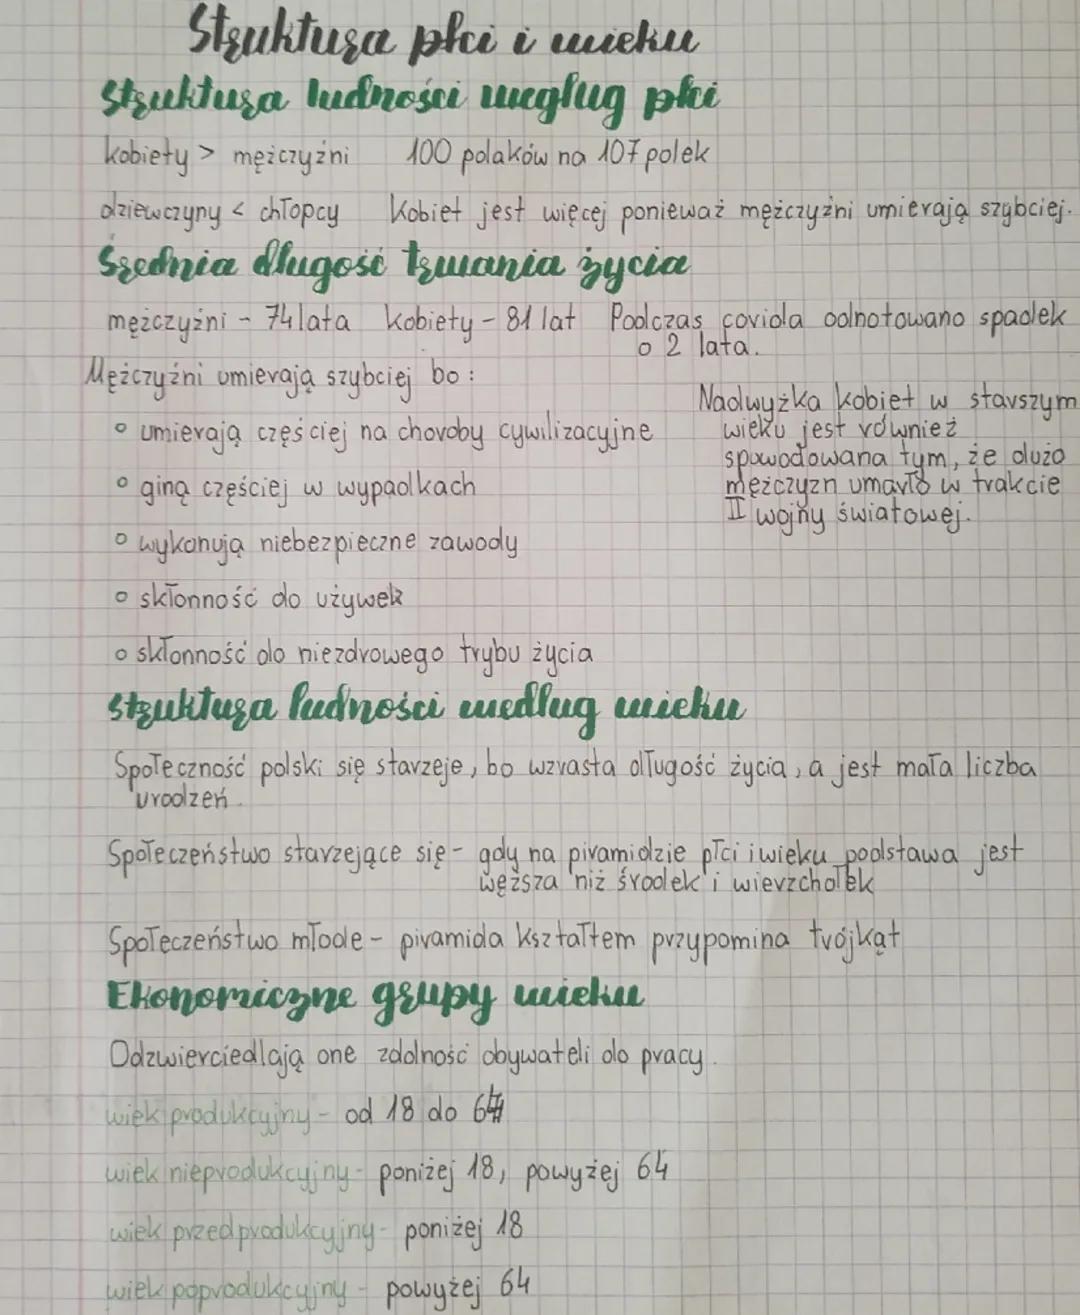 Struktura płci i wieku
Struktura ludności wegług płci
kobiety > mężczyźni 100 polaków na 107 polek
dziewczyny < chłopcy Kobiet jest więcej ponieważ mężczyźni umierają szybciej.
Średnia długość trwania życia
mężczyźni - 74 lata kobiety - 81 lat Podczas covida odnotowano spadek
o 2 lata.
Mężczyźni umierają szybciej bo:
° umierają częściej na choroby cywilizacyjne
° giną częściej w wypadkach
° wykonują niebezpieczne zawody
° skłonność do używek
° skłonność do niezdrowego trybu życia
Nadwyżka kobiet w starszym
wieku jest również
spowodowana tym, że dużo
mężczyzn umarło w trakcie
II wojny światowej.
Struktura ludności według wieku
Społeczność polski się starzeje, bo wzrasta długość życia, a jest mała liczba
urodzeń.
Społeczeństwo starzejące się - gdy na piramidzie płci i wieku podstawa jest
węższa niż środek i wierzchołek
Społeczeństwo młode - piramida kształtem przypomina trójkąt
Ekonomiczne grupy wieku
Odzwierciedlają one zdolność obywateli do pracy.
wiek produkcyjny - od 18 do 64
wiek nieprodukcyjny - poniżej 18, powyżej 64
wiek przedprodukcyjny - poniżej 18
wiek poprodukcyjny - powyżej 64